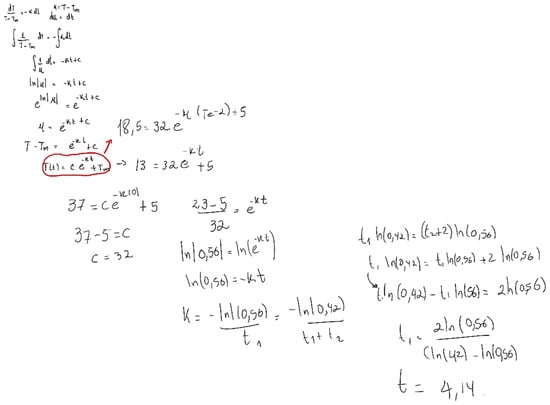 dT/T-Tm = -k dt   u = T-Tm
du = dt
∫ 1/T-Tm dt = -∫ k dt
∫ 1/u du = -kt+c
ln|u| = -kt+c
e^ln|u| = e^-kt+c
u = e^-kt+c
T-Tm = e^-kt+c
T(t) = c e^-kt + Tm
18,5 = 32e
→ 13 = 32e^-kt + 5
37 = ce^-k(0) + 5
37-5 = C
C = 32
23-5/32 = e^-kt
ln|0,56| = ln(e^-kt)
ln(0,56) = -kt
K = -ln(0,56)/t1 = -ln(0,42)/t1+t2
t1 ln(0,42) = (t2+2) ln(0,56)
t1 ln(0,42) = t1 ln(0,56) + 2 ln(0,56)
t1 ln(0,42) - t1 ln(56) = 2 ln(0,56)
t1 = 2 ln(0,56)/(ln(42) - ln(0,56)
t = 4,14